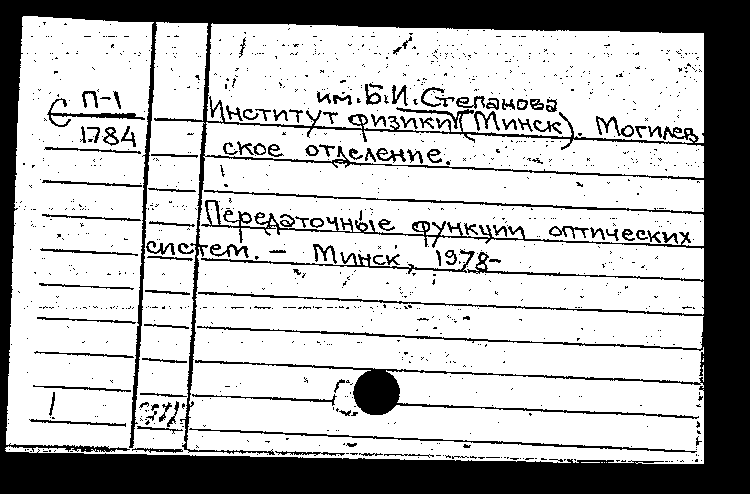 им. Б.И. Степанова
С П-1
1784
Институт физики (Минск). Могилев-
ское отделение.
Передаточные функции оптических
систем. – Минск, 1978-
1